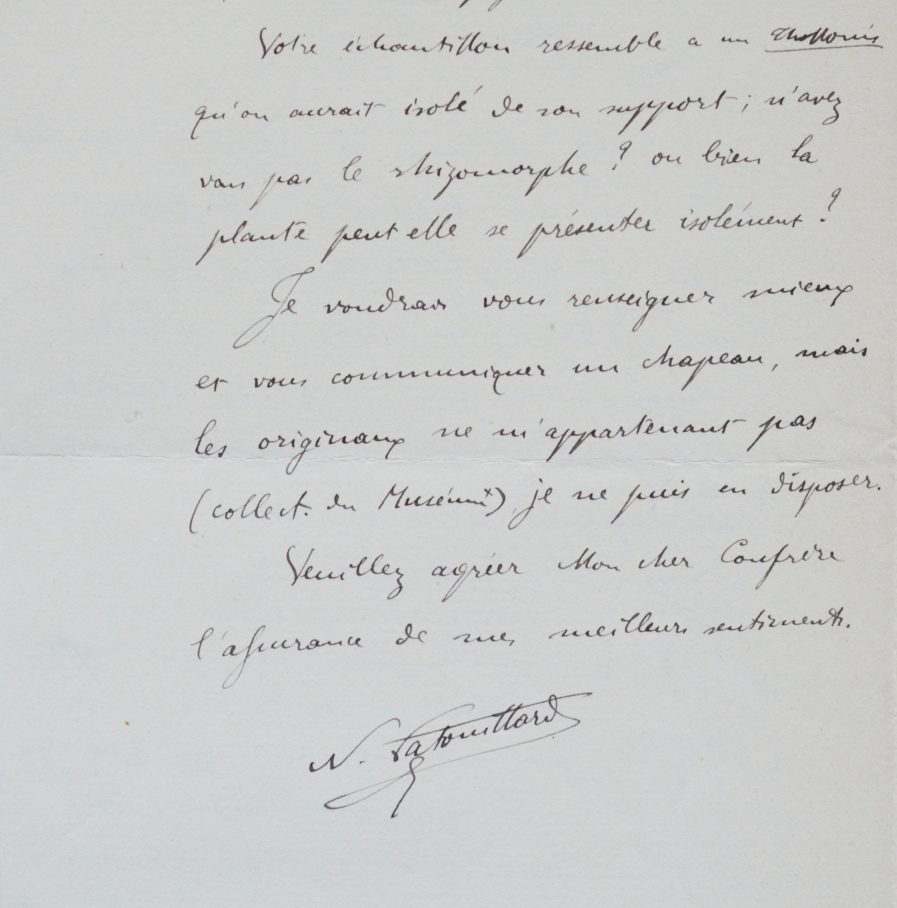 Votre échantillon ressemble a un
qu'on aurait isolé de son support ; n'avez
vous pas le rhizomorphe ? ou bien la
plante peut elle se présenter isolément ?
Je voudrais vous renseigner mieux
et vous communiquer un chapeau, mais
les originaux ne m'appartenant pas
(collect. du Muséum) je ne puis en disposer.
Veuillez agréer Mon cher Confrère
l'assurance de mes meilleurs sentiments.
N. Patouillard